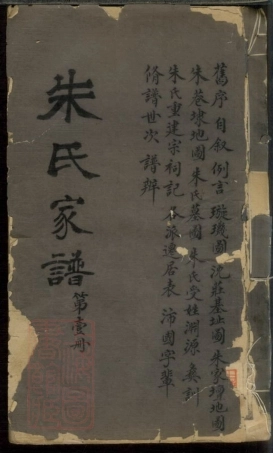 舊序 自叙 例言 璇璣圖 沈莊基址圖 朱家埠地圖
朱巷埭地圖 朱氏墓圖 朱氏受姓淵源 彙訓
朱氏重建宗祠記 各派遷居表 沛國字輩
脩譜世次 譜辯
朱氏家譜
第壹册